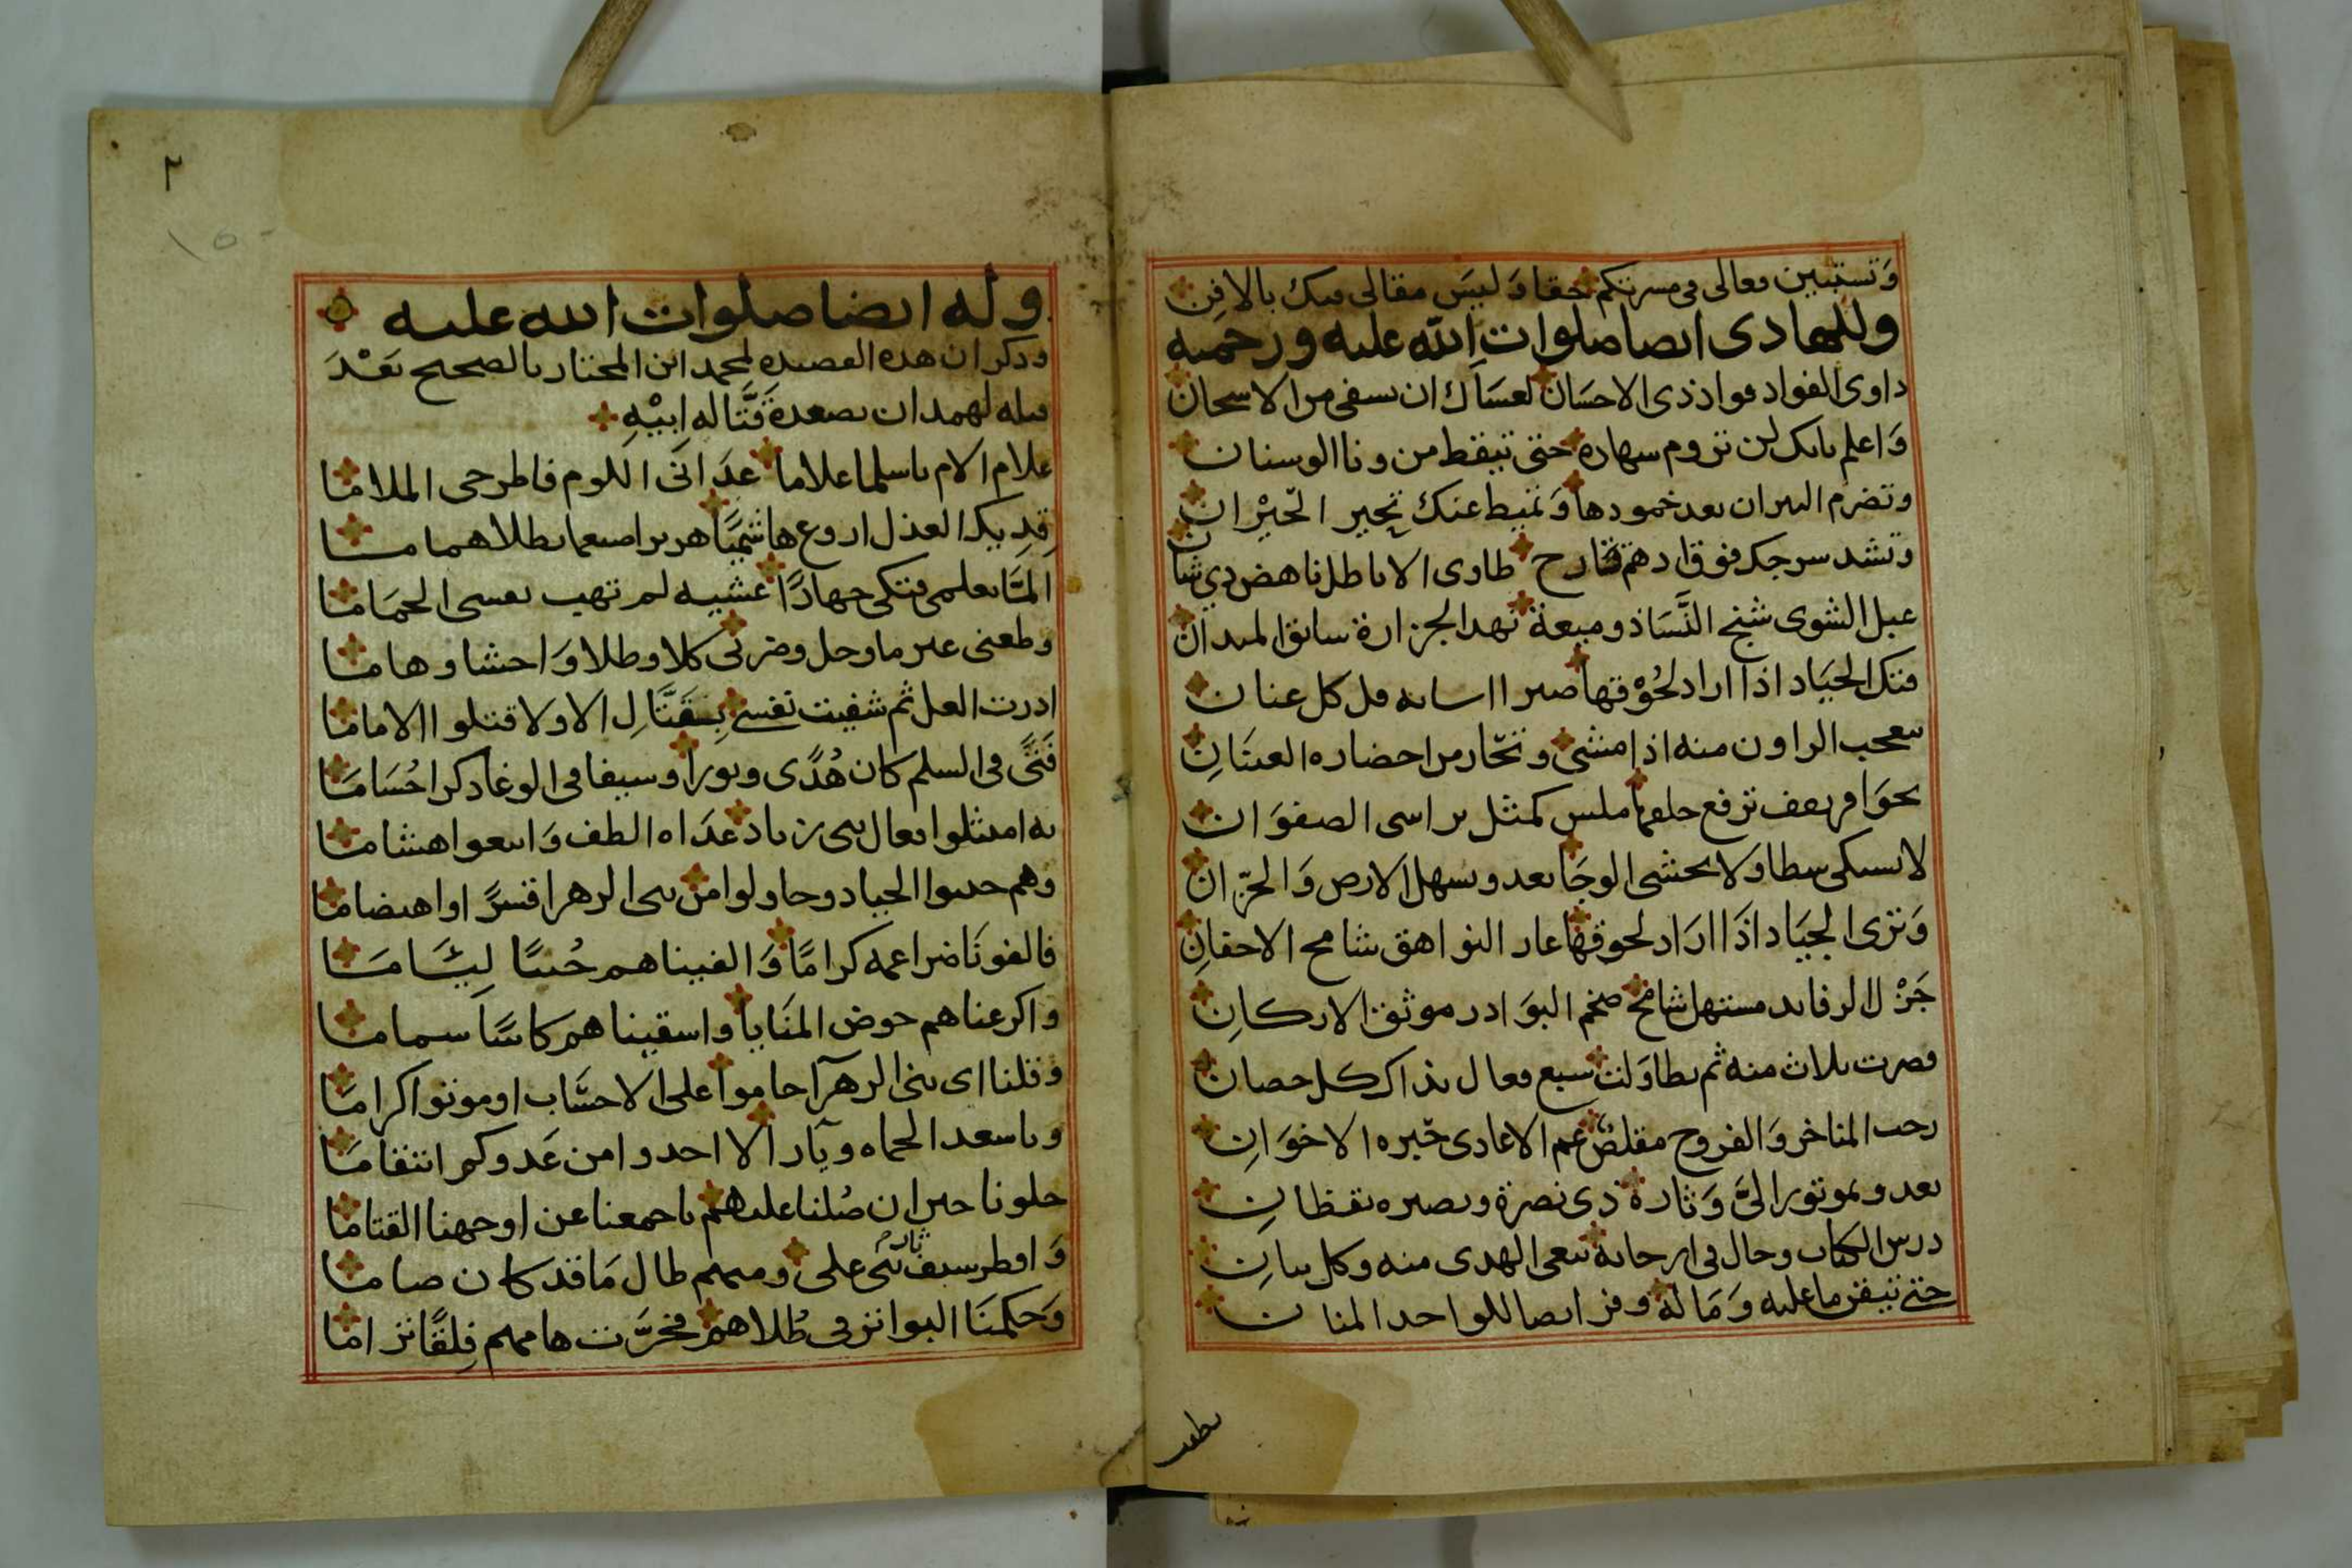 وَتستبين فعالى فى مسرتكم حقا وَليسَ مقالى فيك بالافِنِ
وللهادى ايضا صلوات الله عليه ورحمته
داوى الفواد فواد ذى الاحسَان لعسَاك ان تسفى من الاسحان
وَاعلم بانك لن تروم سهاده حتى تيقظ من ونا الوسنان
وتضرم النيران بعد خمودها وَتميط عنك تحير الحَيْران
وتشد سرجك فوق ادهم قارح طاوى الاباطل ناهض ذي شان
عبل الشوى شنج النَّسَا ذو ميعة نهد الجزارة سابق الميدان
فتك الجيَاد اذا اراد لحُوْقها صبرا اسانه قبل كل عنان
يتعجب الراون منه اذا مشى وتحَار من احضاره العينَانِ
بحوَافر تقف ترفع حلقها ملس كمثل براسى الصفوَان
لا يستكى سطا ولا يخشى الوجَا يعدو بسهل الارض وَالحزّان
وَترى الجيَاد اذَا ارَاد لحوقها عار النواهق شامح الاحقانِ
جَزْل الرفايد مستهل شامخ صخم البوَادر موثق الاركانِ
قصرت ثلاث منه ثم تطاوَلت سبع فعال بذاك كل حصان
رحب المناخر وَالفروج مقلص غم الاعادى خيره الاخوَانِ
يعدو بموتور الىَّ وَثاره ذى نصرة وبصيره يقظانِ
درس الكتاب وجال فى ارجائه يبغى الهدى منه وكل بيانِ
حتى تيقن ما عليه وَمَا له وفرايضا للواحد المنان
٢
وله ايضا صلوات الله عليه
وذكر ان هذه القصيده لمحمد ابن المختار بالصحيح بَعْدَ
قتله لهمدان بصعدة قتَّاله ابيْهِ
علام الام يا سلما علاما عدَانى اللوم فاطرحى الملاما
قِدِيك العذل اروع هاشميًا هزبرا صيغما بطلا هماما
المَّا تعلمى فتكى جهارًا عشيه لم تهب نفسى الحمَاما
وطعنى غير ما وجل وضربى كلا وطلا وَاحشا وهاما
ادرت العل ثم شفيت نفسى بِقتَّالِ الاولا قتلوا الاماما
فَتىً فى السلم كان هُدًى ونورا وسيفا فى الوغا ذكرا حُسَامَا
به امتثلوا بعال بنى زياد غدَاه الطف وَاتبعوا هشاما
وهم جنبوا الجياد وحاولوا من بنى الزهرا قسرًا او اهتضاما
فالفونَا ضراعمه كرامًا وَالفيناهم خُبنًا ليئَامَا
واكرعناهم حوض المنَايا واسقيناهم كاسًا سماما
وَقلنا اى بنى الزهرآ حاموا على الاحسَاب او موتوا كراما
ويا سعد الحماه ويآر الا احدوا من عَدوكم انتقامَا
جلونا حين ان صُلنا عليهم باجمعنا عن اوجهنا القتاما
وَافطر سيف ثارى على ومنهم طال مَا قد كان صاما
وَحكمنَا البواتر فى طُلاهم فخرَّت هامهم فِلقًا تراما